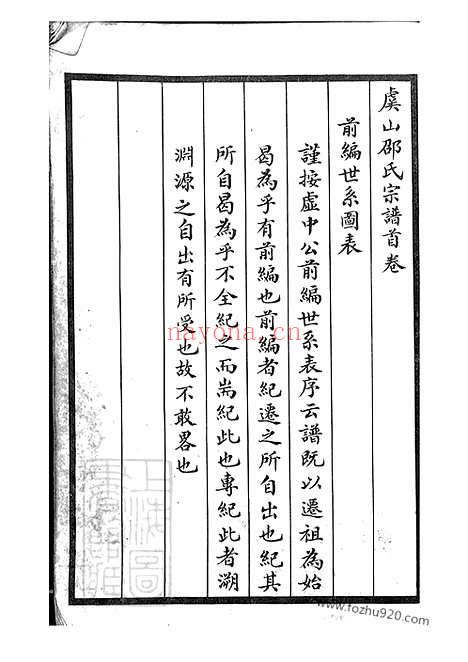 虞山邵氏宗譜首卷
前編世系圖表
謹按虛中公前編世系表序云譜既以遷祖為始
曷為乎有前編也前編者紀遷之所自出也紀其
所自曷為乎不全紀之而耑紀此也專紀此者溯
淵源之自出有所受也故不敢畧也
nayona.cn
www.fozhu920.com